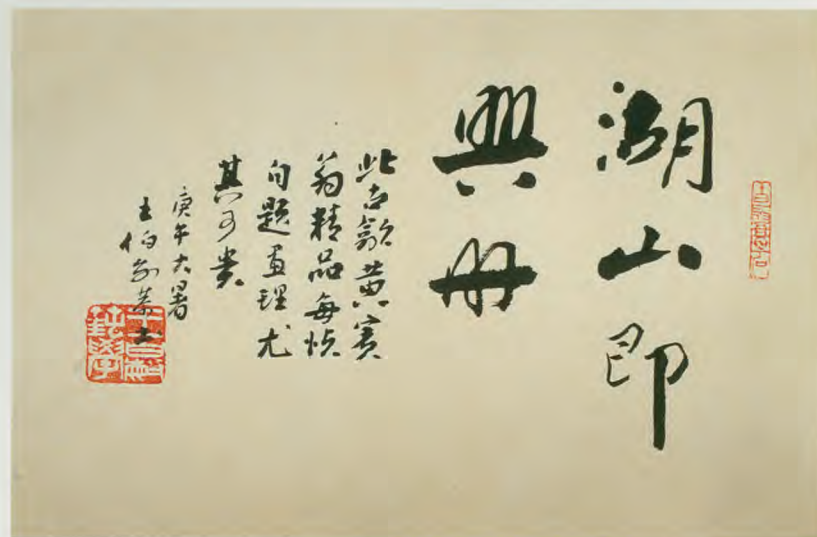 湖山即
興册
此古歙黄賓
翁精品每幀
自題畫理尤
其可貴
庚午大暑
王伯敏